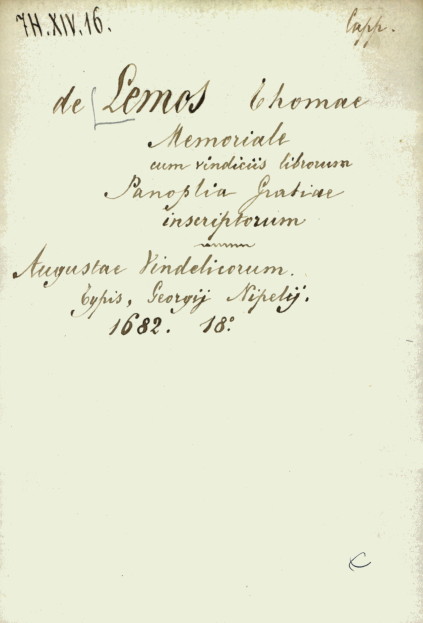 7H.XIV.16.
Capp.
de Lemos Thomae
Memoriale
cum vindiciis librorum
Panoplia Gratiae
inscriptorum
Augustae Vindelicorum.
Typis, Georgij Nipelij.
1682. 18°